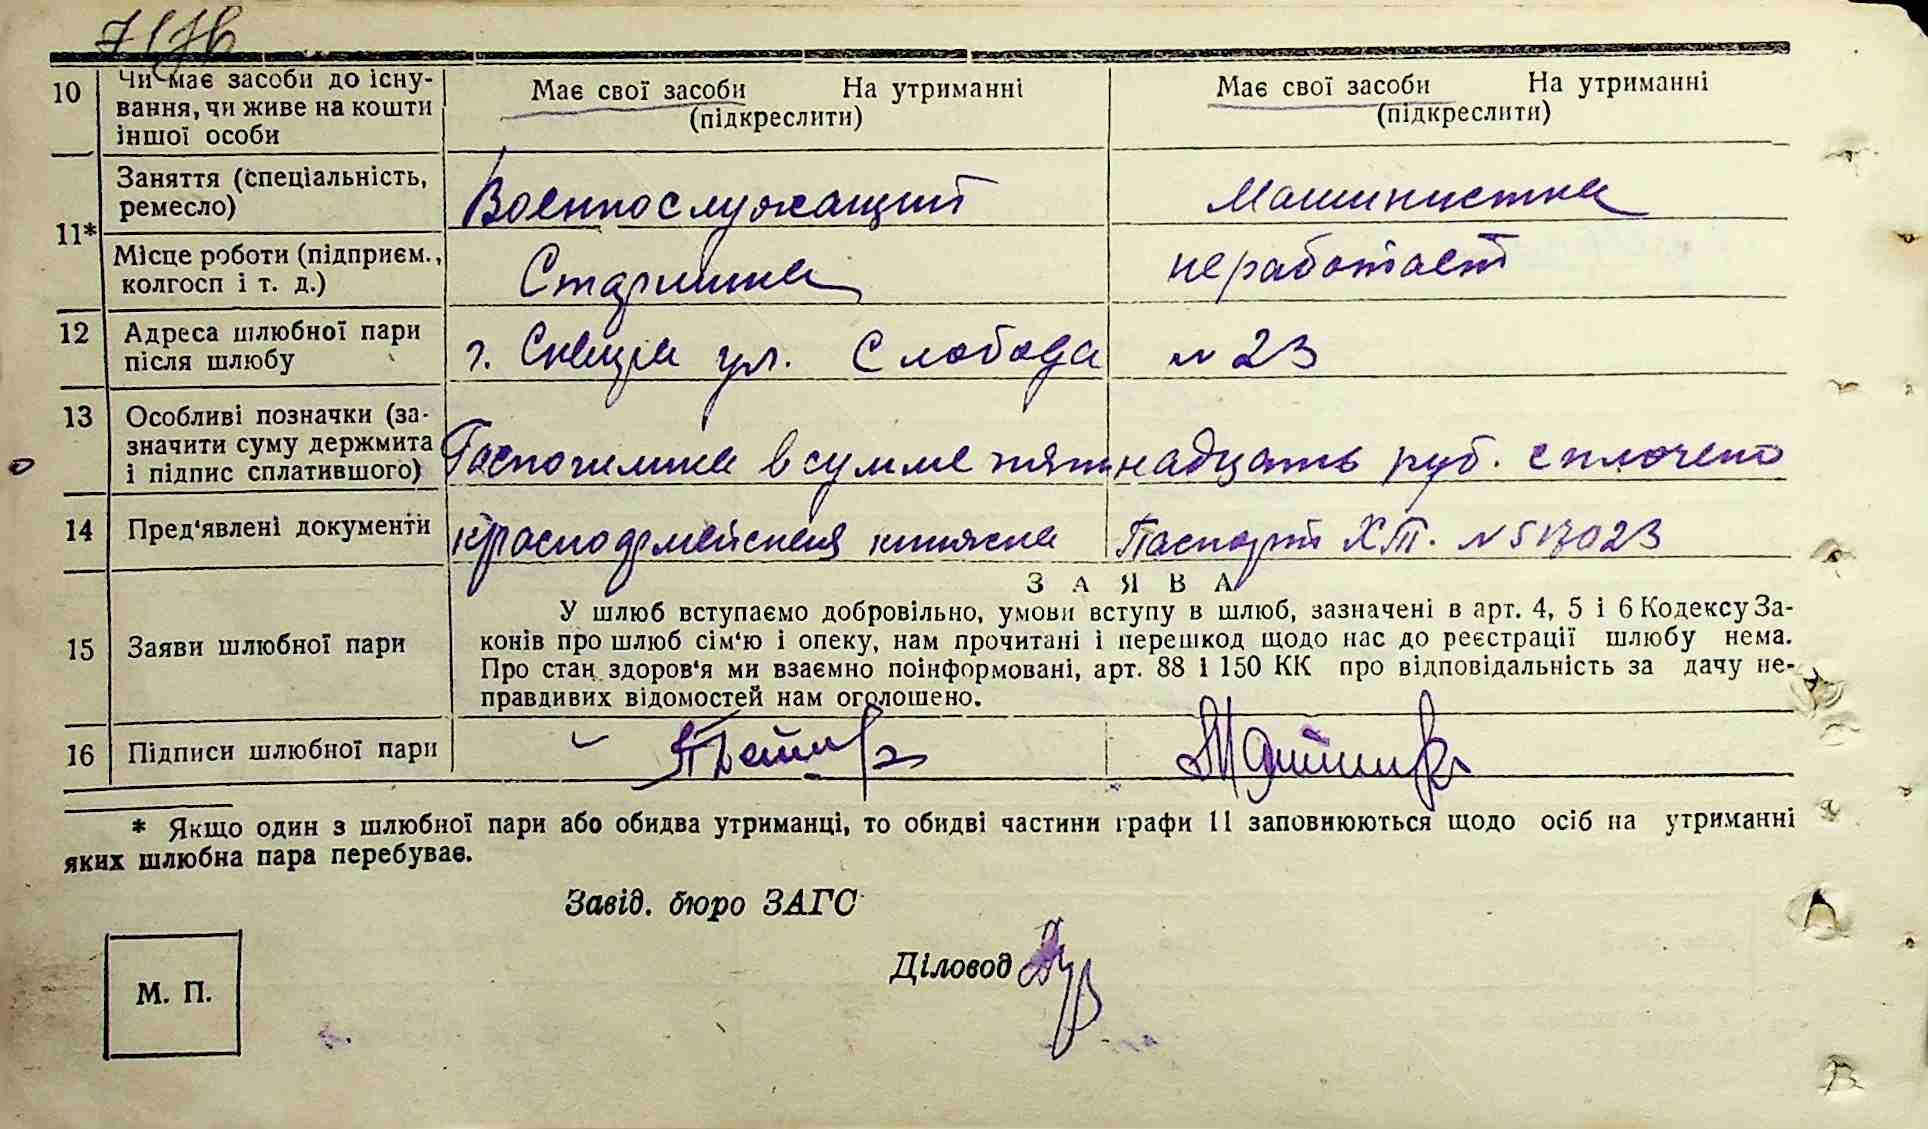 10 Чи має засоби до існу-
вання, чи живе на кошти
іншої особи
Має свої засоби На утриманні
(підкреслити)
Має свої засоби На утриманні
(підкреслити)
11*
Заняття (спеціальність,
ремесло)
Военнослужащий
Машинистка
Місце роботи (підприєм.,
колгосп і т. д.)
Старшина
не работает
12 Адреса шлюбної пари
після шлюбу
г. Сквира ул. Слобода № 23
13 Особливі позначки (за-
значити суму держмита
і підпис сплатившого)
Госпошлина в сумме пятнадцать руб. сплочено
14 Пред'явлені документи
красноармейская книжка
Паспорт ХТ. №
З А Я В А
15 Заяви шлюбної пари
У шлюб вступаємо добровільно, умови вступу в шлюб, зазначені в арт. 4, 5 і 6 Кодексу За-
конів про шлюб сім'ю і опеку, нам прочитані і перешкод щодо нас до реєстрації шлюбу нема.
Про стан здоров'я ми взаємно поінформовані, арт. 88 і 150 КК про відповідальність за дачу не-
правдивих відомостей нам оголошено.
16 Підписи шлюбної пари
* Якщо один з шлюбної пари або обидва утриманці, то обидві частини графи 11 заповнюються щодо осіб на утриманні
яких шлюбна пара перебуває.
Завід. бюро ЗАГС
Діловод
М. П.